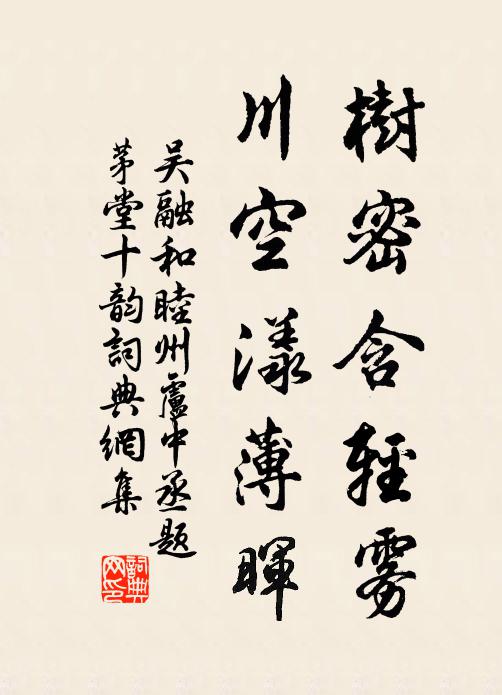 樹密含輕霧
川空漾薄暉
吴融和睦州盧中丞题
茅堂十韵詞典網集
詞典网印